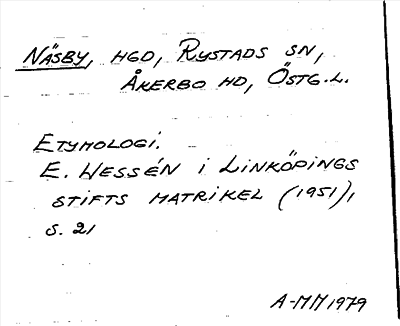 NÄSBY, HGD, RYSTADS SN,
ÅKERBO HD, ÖSTG.L.
ETYMOLOGI.
E. WESSÉN I LINKÖPINGS
STIFTS MATRIKEL (1951),
S. 21
A-MM 1979